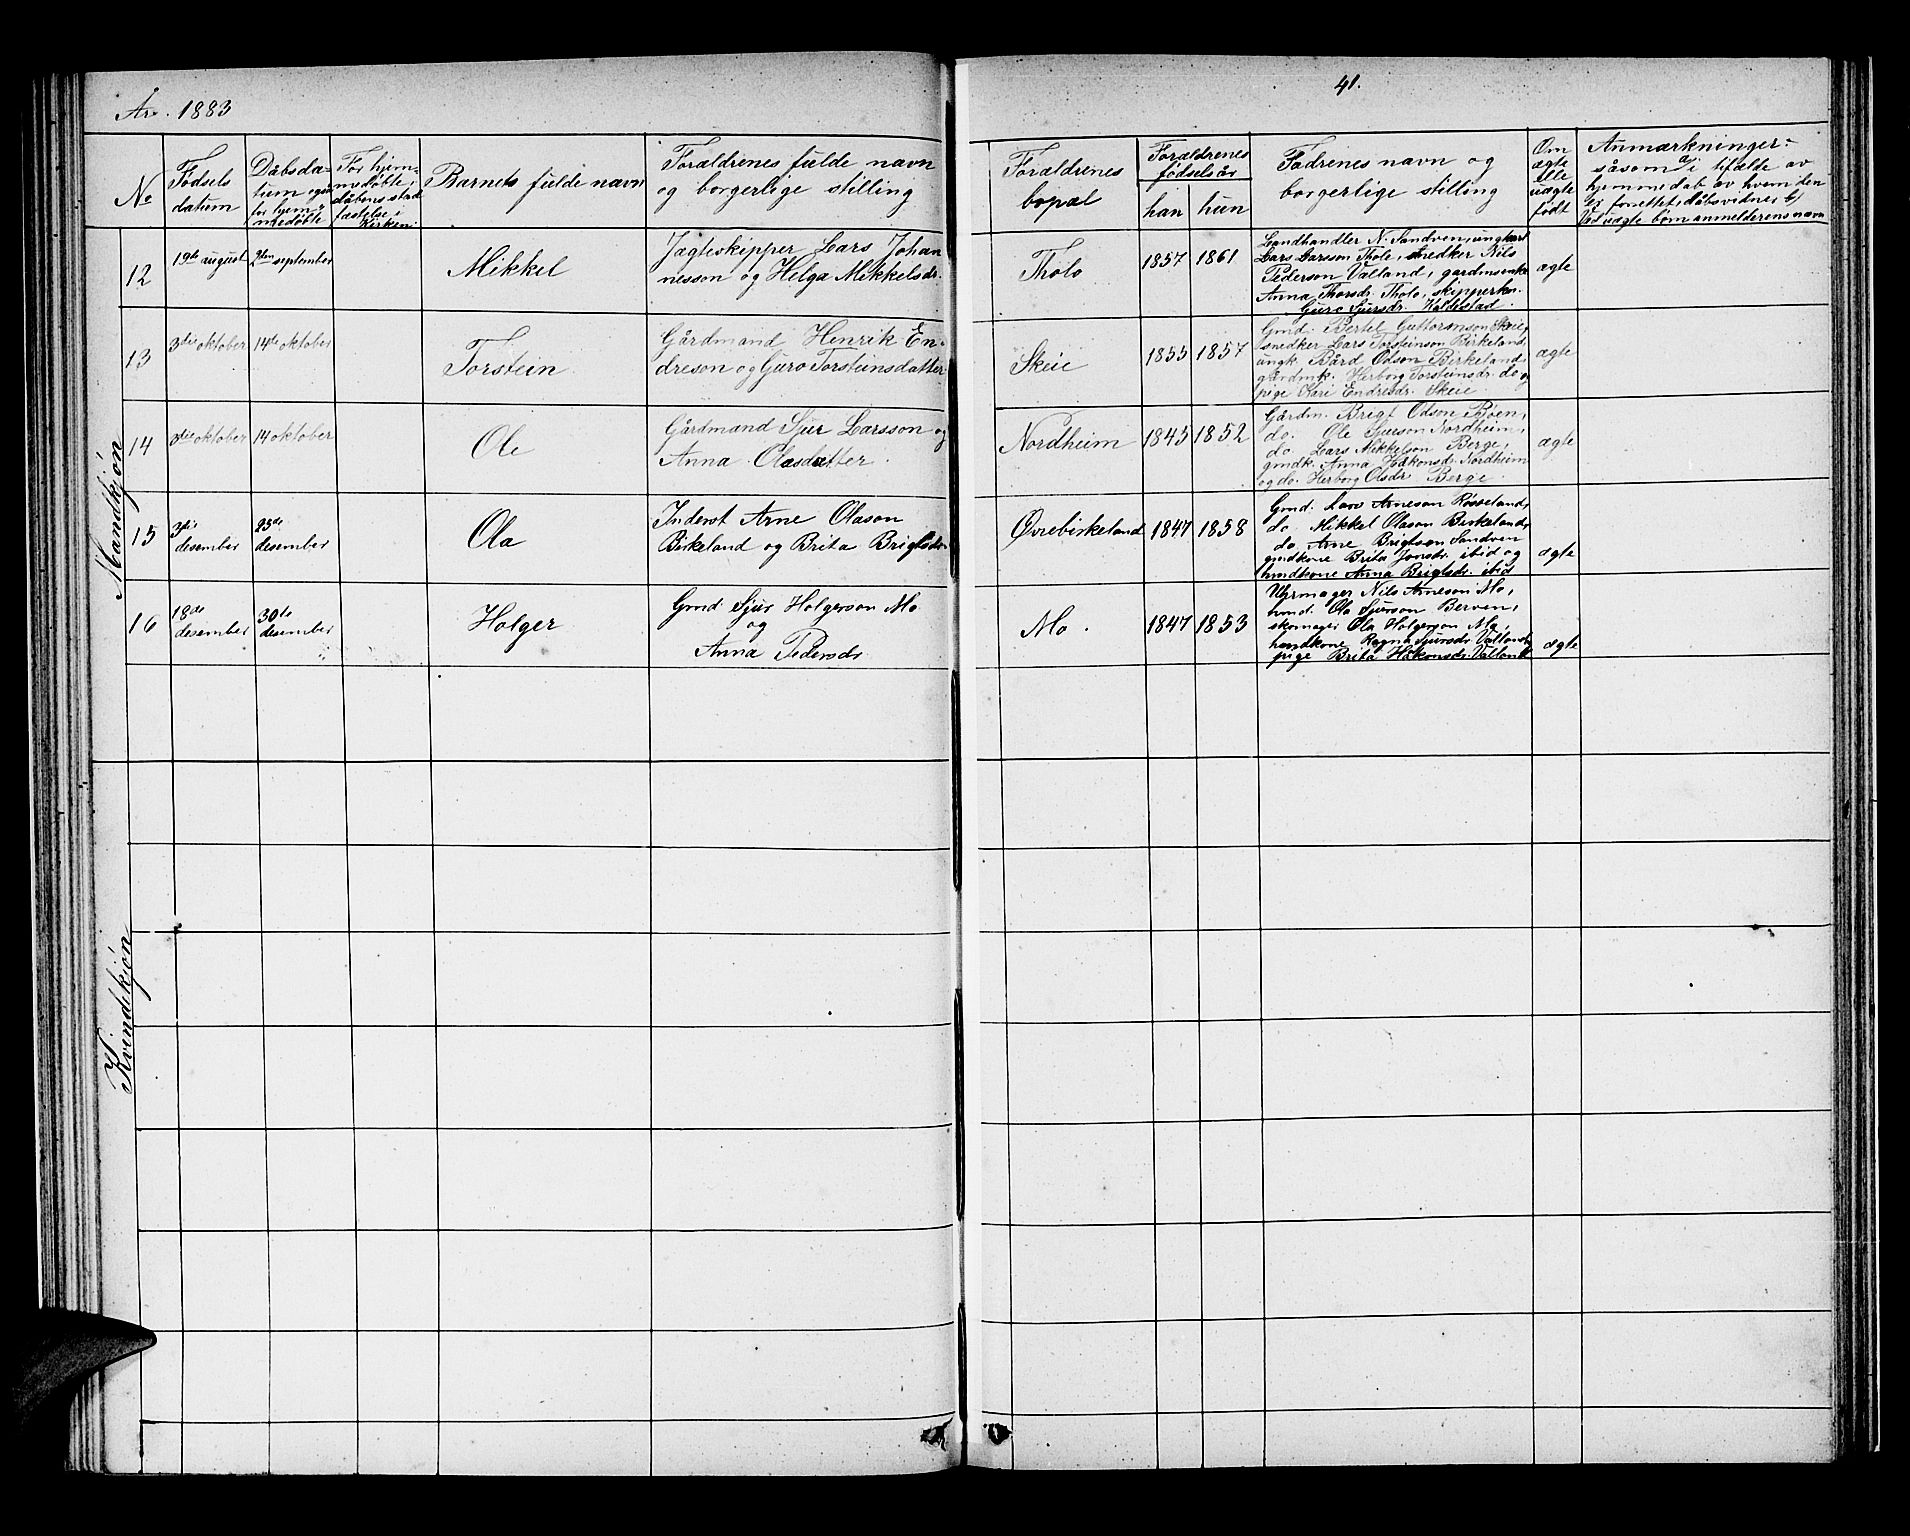 År. 1883
41.
No
Fødsels datum
Dåbsdatum
Før hjemmedøbte, dåbens stadfæstelse i kirken
Barnets fulde navn
Forældrenes fulde navn og borgerlige stilling
Forældrenes bopæl
Forældrenes fødselsår
han hun
Fadrenes navn og borgerlige stilling
Om ægte elle uægte født
Anmærkninger:
såsom a/ i tifælde av
hjemmedåb av hvem den
er forrettet, dåbsvidner b/
Ved uægte børn anmelderens navn
Mandkjøn
12
19de august
9den september
Mikkel
Jagteskipper Lars Johan
nesson og Helga Mikkelsdr.
Tholo
1857 1861
Landhandler N. Sandven, ungkarl
Lars Larsson Tholo, snedker Nils
Pederson Valland, gardmands
Anna Thorsdr. Tholo, skipperkn.
Guro Sjursdr. Haldestad.
ægte
13
3die oktober
14de oktober
Torstein
Gårdmand Henrik En-
dreson og Guro Torsteinsdatter
Skeie
1855 1857
Gmd. Bertel Guttormson Skeie,
snedker Lars Torsteinson Birkeland,
ungk. Bård Odson Birkeland,
gårdmk. Herborg Torsteinsdr. do og
pige Kari Endresdr. Skeie
ægte
14
3die oktober
14 oktober
Ole
Gårdmand Sjur Larsson og
Anna Olasdatter.
Nordheim
1845 1852
Gårdm. Brigt Odson Bøen,
do. Ole Sjurson Nordheim,
do Lars Mikkelson Berge,
gmdk. Anna Håkonsdr. Nordheim
og do. Herborg Olsdr. Berge.
ægte
15
3die desember
23de desember
Ola
Inderst Arne Olason
Birkeland og Brita Brigtsdr
Øvrebirkeland
1847 1858
Gmd. Lars Arneson Røsseland,
do Mikkel Olason Birkeland,
do Arne Brigtson Sandven
gmdkone Brita Jonsdr. ibid og
husdkone Anna Brigtsdr. ibid
ægte
16
18de desember
30te desember
Holger
Gmd Sjur Holgerson Mo
og
Anna Pedersdr
Mo.
1847 1853
Uhrmager Nils Arneson Mo,
hmd. Ola Sjurson Berven,
skomager Ola Holgerson Mo,
husdkone Ragna Sjursdr. Valland,
pige Brita Håkonsdr. Valland
ægte
Kvindekjøn